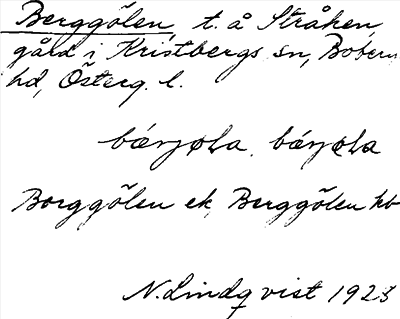 Berggölen, t. å Stråken,
gård i Kristbergs sn, Bobers
hd, Österg. l.
bærjøla. bærjøla
Borggölen ek, Berggölen kb
N. Lindqvist 1923